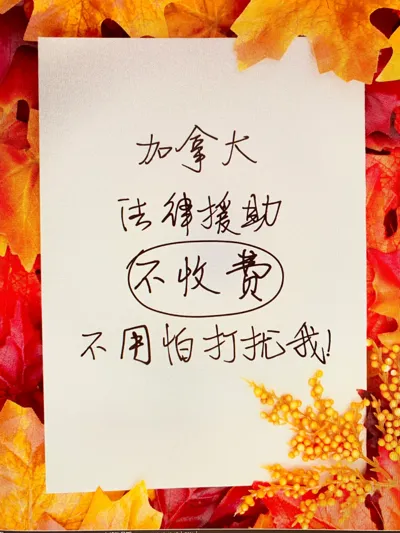 加拿大
法律援助
不收费
不用怕打扰我!